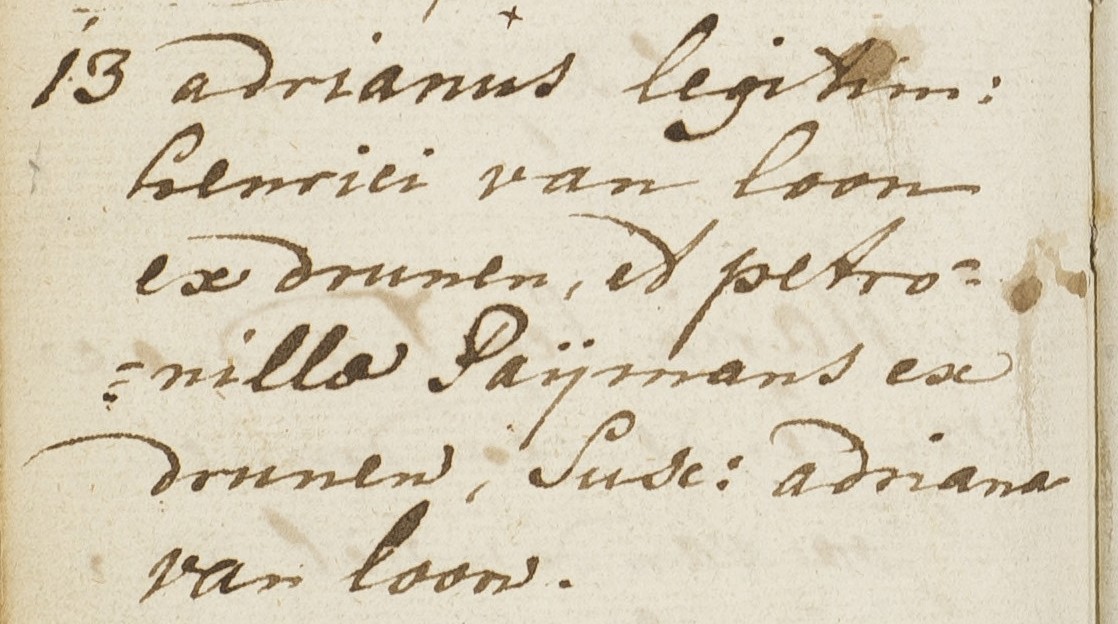 13 adrianus legitim:
henrici van loon
ex drunen, et petro=
=nilla Paÿmans ex
drunen, Susc: adriana
van loon.